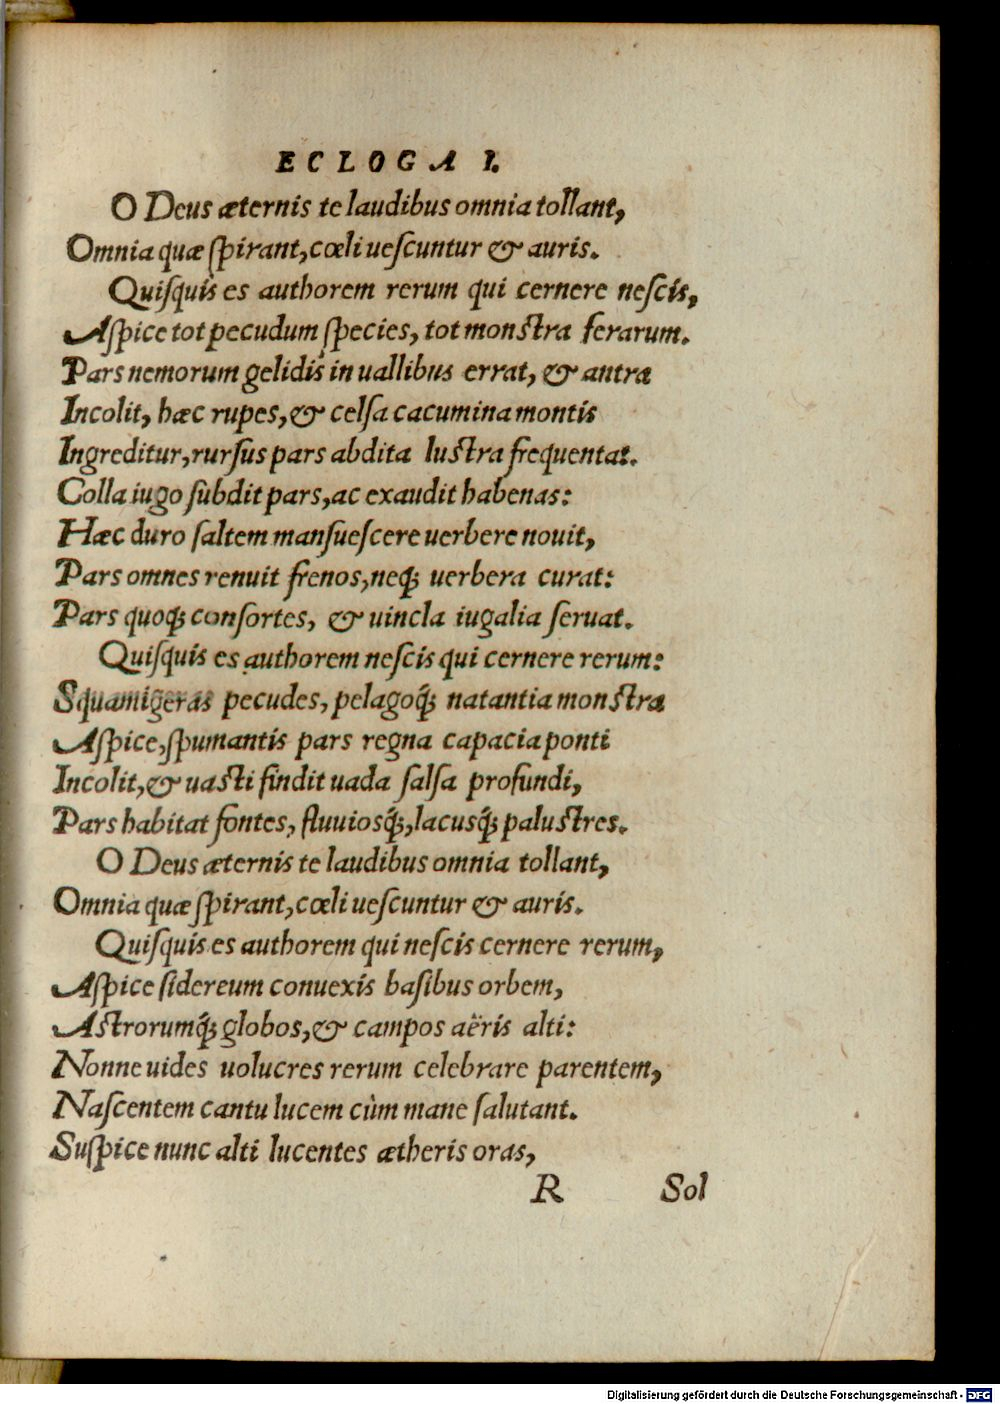 ECLOGA I.
O Deus æternis te laudibus omnia tollant,
Omnia quæ ſpirant, cœli ueſcuntur & auris.
Quiſquis es authorem rerum qui cernere neſcis,
Aſpice tot pecudum ſpecies, tot monſtra ferarum.
Pars nemorum gelidis in uallibus errat, & antra
Incolit, hæc rupes, & celſa cacumina montis
Ingreditur, rurſus pars abdita luſtra frequentat.
Colla iugo ſubdit pars, ac exaudit habenas:
Hæc duro ſaltem manſueſcere uerbere nouit,
Pars omnes renuit frenos, neq; uerbera curat:
Pars quoq; conſortes, & uincla iugalia ſeruat.
Quiſquis es authorem neſcis qui cernere rerum:
Squamigeras pecudes, pelagoq́; natantia monſtra
Aſpice, ſpumantis pars regna capacia ponti
Incolit, & uaſti findit uada ſalſa profundi,
Pars habitat fontes, fluuiosq́;, lacusq́; paluſtres.
O Deus æternis te laudibus omnia tollant,
Omnia quæ ſpirant, cœli ueſcuntur & auris.
Quiſquis es authorem qui neſcis cernere rerum,
Aſpice ſidereum conuexis baſibus orbem,
Aſtrorumq́; globos, & campos aëris alti:
Nonne uides uolucres rerum celebrare parentem,
Naſcentem cantu lucem cùm mane ſalutant.
Suſpice nunc alti lucentes ætheris oras,
R Sol
Digitalisierung gefördert durch die Deutsche Forschungsgemeinschaft - DFG